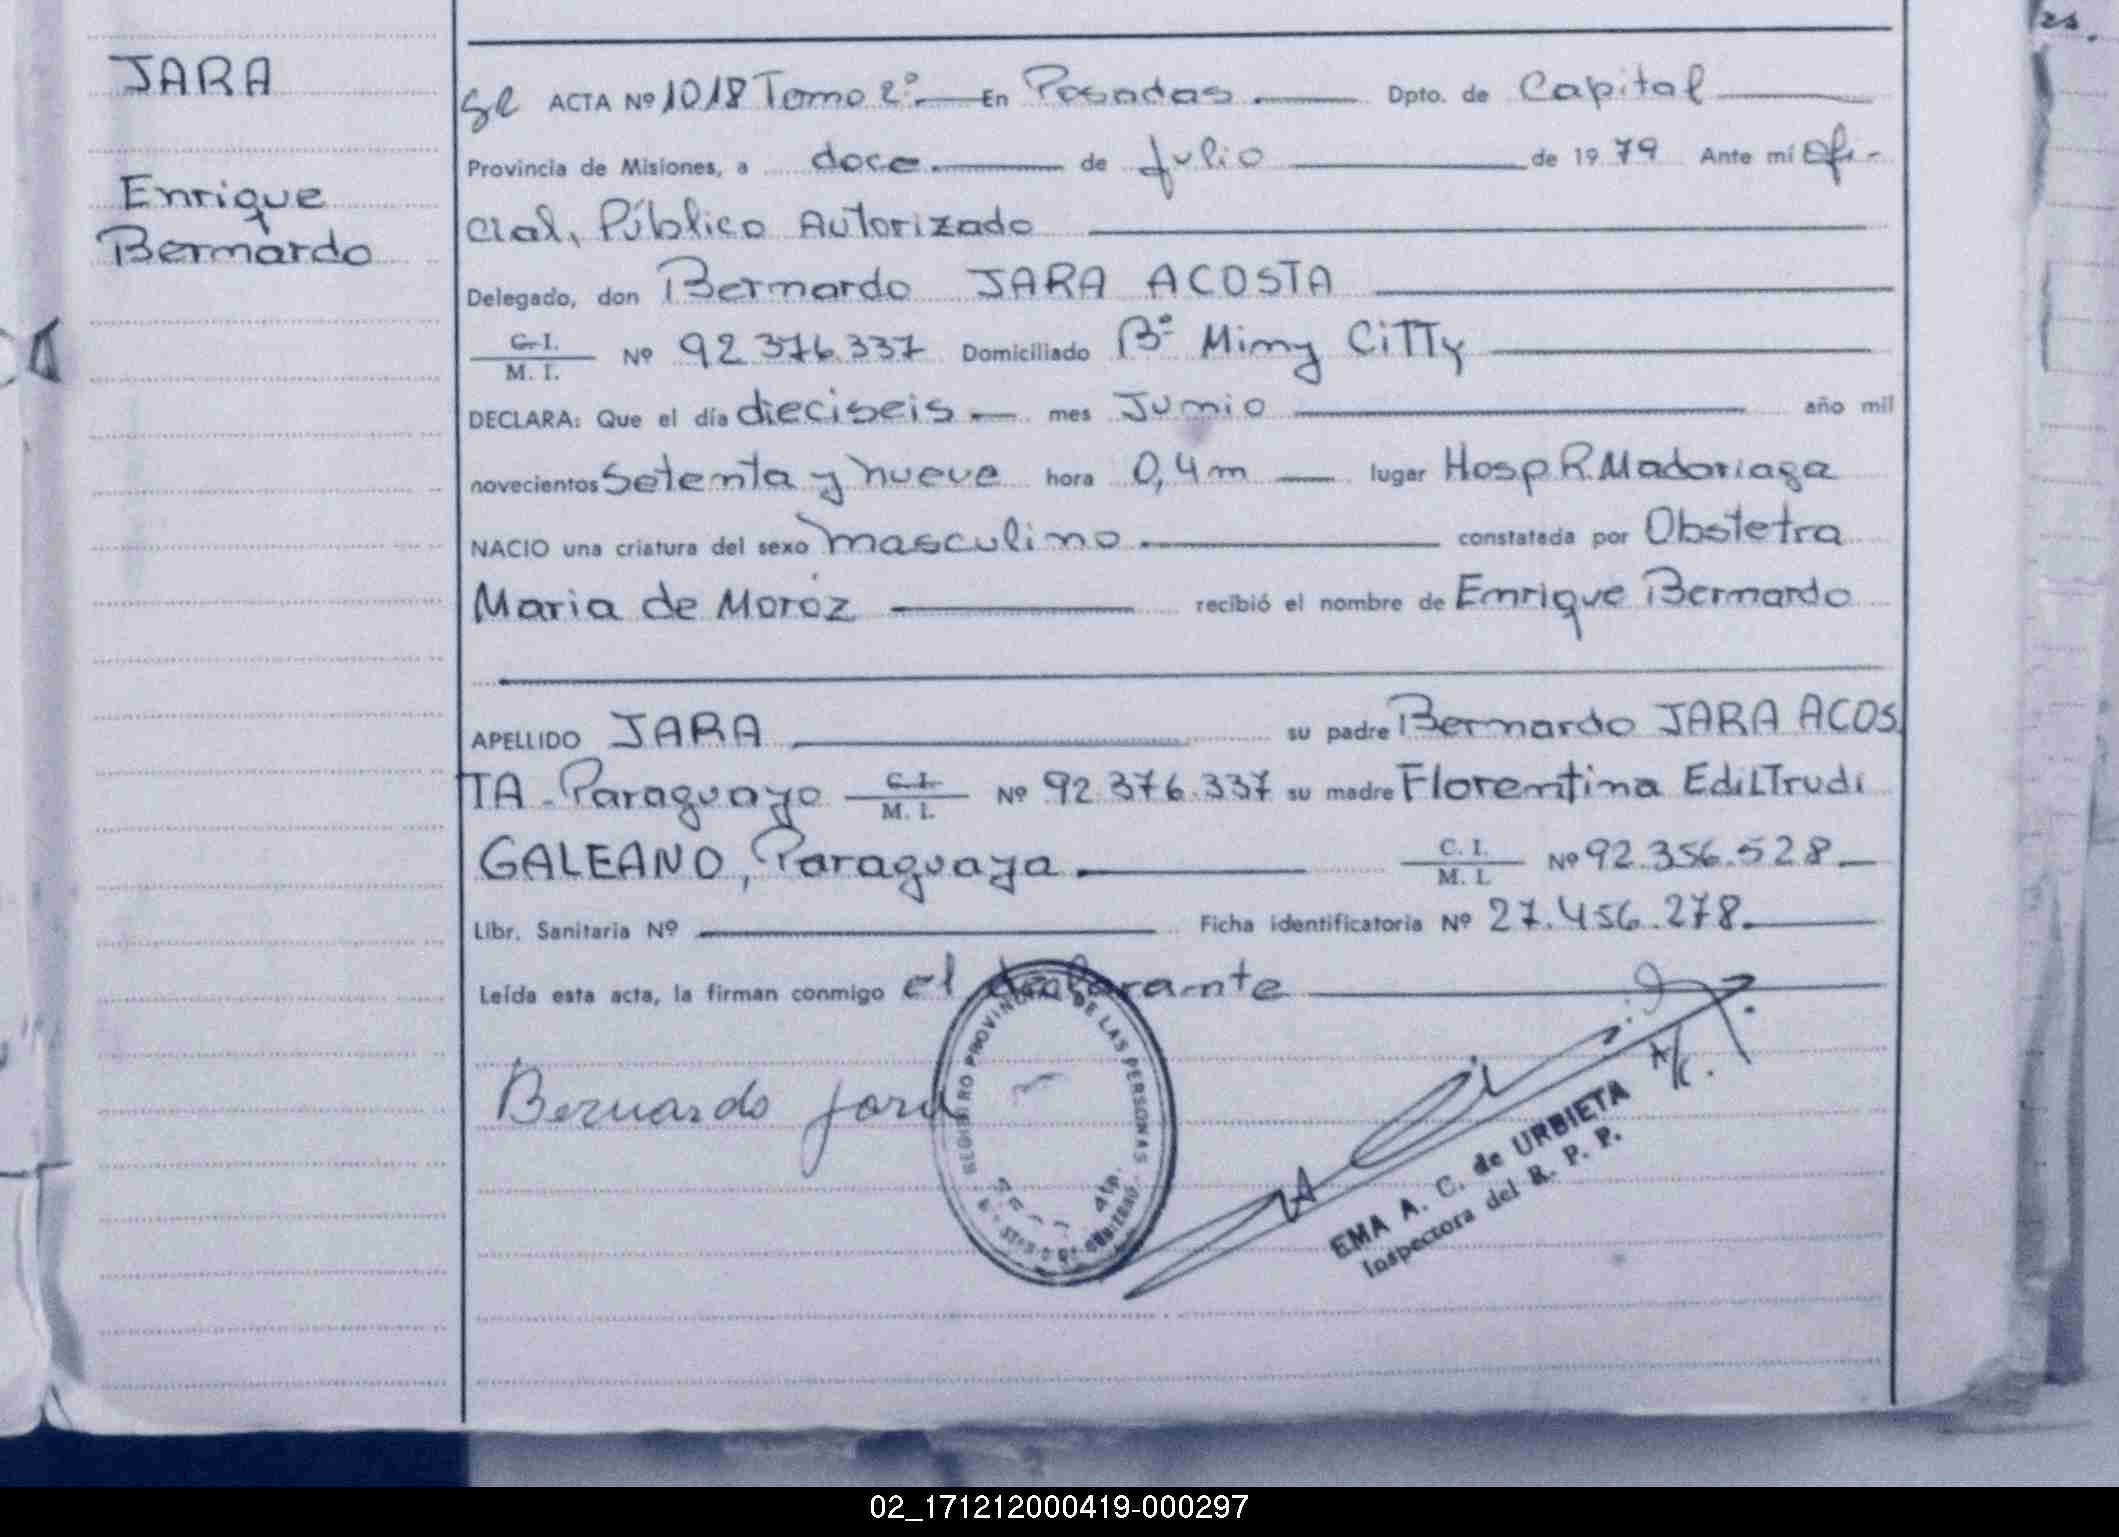 JARA
Enrique
Bernardo
ACTA Nº 1018 Tomo 2º En Posadas Dpto. de Capital
Provincia de Misiones, a doce de Julio de 1979 Ante mí Ofi-
cial, Público Autorizado
Delegado, don Bernardo JARA ACOSTA
C. I.
M. I. Nº 92 376.337 Domiciliado Bº Mimy CiTTy
DECLARA: Que el día dieciseis mes Junio año mil
novecientos setenta y nueve hora 0,4m lugar Hosp R. Madariaga
NACIO una criatura del sexo masculino constatada por Obstetra
Maria de Moroz recibió el nombre de Enrique Bernardo
APELLIDO JARA su padre Bernardo JARA ACOS
TA - Paraguayo C. I. M. I. Nº 92 376.337 su madre Florentina EdilTrudi
GALEANO, Paraguaya C. I. M. I. Nº 92.356.528
Libr. Sanitaria Nº Ficha identificatoria Nº 27.456.278.
Leída esta acta, la firman conmigo el declarante
Bernardo Jara
REGISTRO PROVINCIAL DE LAS PERSONAS
A/C.
EMA A. C. de URBIETA
Inspectora del R. P. P.
02_171212000419-000297